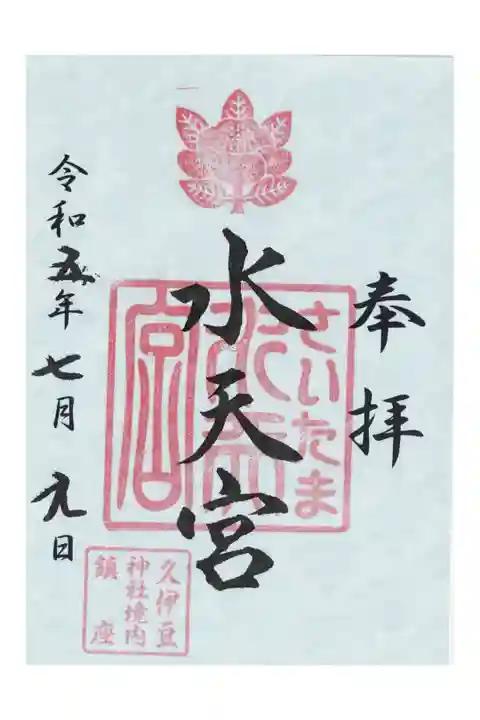 奉拝
さいたま
水天宮
水天宮
令和五年七月九日
久伊豆
神社境内
鎮座